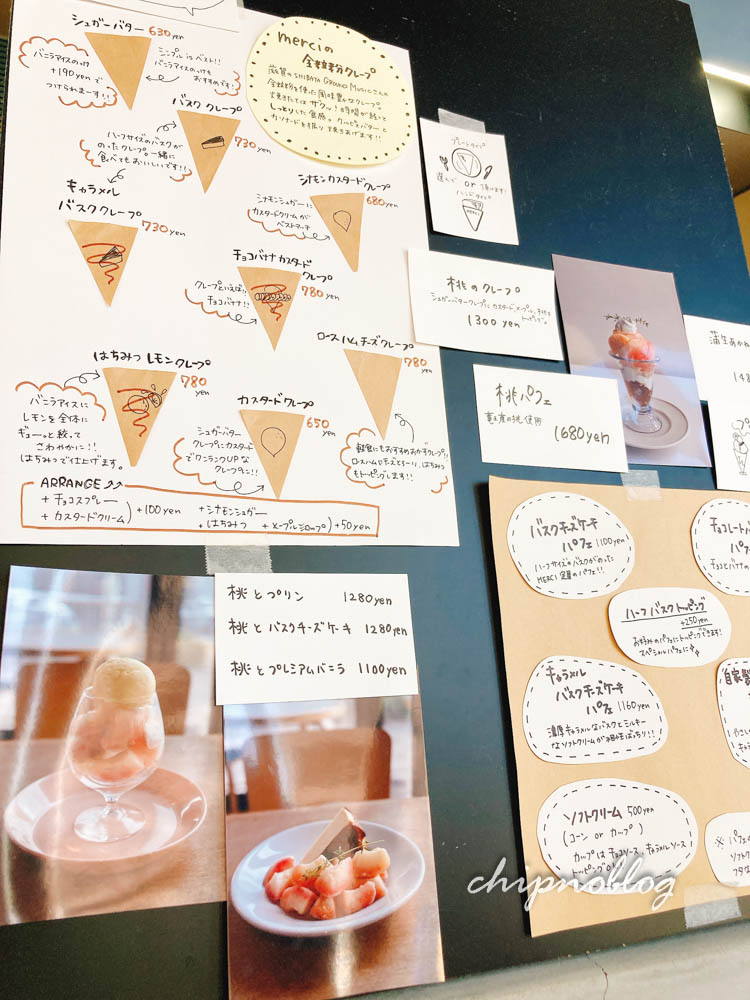 シュガーバター 630yen
バニラアイスのっけ
+190yenで
つけられまーす!!
シンプル is ベスト!!
バニラアイスのっけも
おすすめです!
merciの
全粒粉クレープ
滋賀のSHIBATA GROUND MUSICさんの
全粒粉を使った風味豊かなクレープ。
焼きたては サクッ! 時間が経つと
しっとりした食感。
バスク クレープ
730yen
ハーフサイズのバスクが
のったクレープ。一緒に
食べてもおいしいです!!
キャラメル
バスククレープ
730yen
シナモンカスタード
クレープ
680yen
シナモンシュガーに
カスタードクリームが
ベストマッチ
チョコバナナカスタード
クレープ
780yen
クレープといえば!!
チョコバナナ!!
はちみつレモンクレープ
780yen
バニラアイスに
レモンを全体に
ギューっと絞って
さわやかに!!
はちみつで仕上げます。
カスタードクレープ
650yen
シュガーバター
クレープにカスタード
でワンランクUPな
クレープに!!
ロースハムチーズクレープ
780yen
軽食にもおすすめおかずクレープ。
ロースハムとチーズとチリ、はちみつ
もトッピングします!!
ARRANGE
+チョコスプレー
+カスタードクリーム) +100yen
+シナモンシュガー
+はちみつ +メープルシロップ) +50yen
プレートタイプ
or
選んで 頂けます!
ハンドタイプ
桃のクレープ
シュガーバタークレープにカスタード、メープル、桃を
トッピング。
1300yen
桃パフェ
桃使用
1680yen
蒲生あかね
148
桃とプリン 1280yen
桃とバスクチーズケーキ 1280yen
桃とプレミアムバニラ 1100yen
バスクチーズケーキ
パフェ 1100yen
ハーフサイズのバスクがのった
MERCI 定番のパフェ!!
チョコレート
パフ
チョコとバナナの
ハーフバスクトッピング
+250yen
お好みのパフェにトッピングできます!
スペシャルパフェに
キャラメル
バスクチーズケーキ
パフェ 1160yen
濃厚キャラメルなバスクとミルキー
なソフトクリームが相性ばっちり!!
自家製
ソフトクリーム 500yen
(コーン or カップ)
カップはチョコソース、キャラメルソース
トッピング
※パフェの
ソフトク
chipnoblog